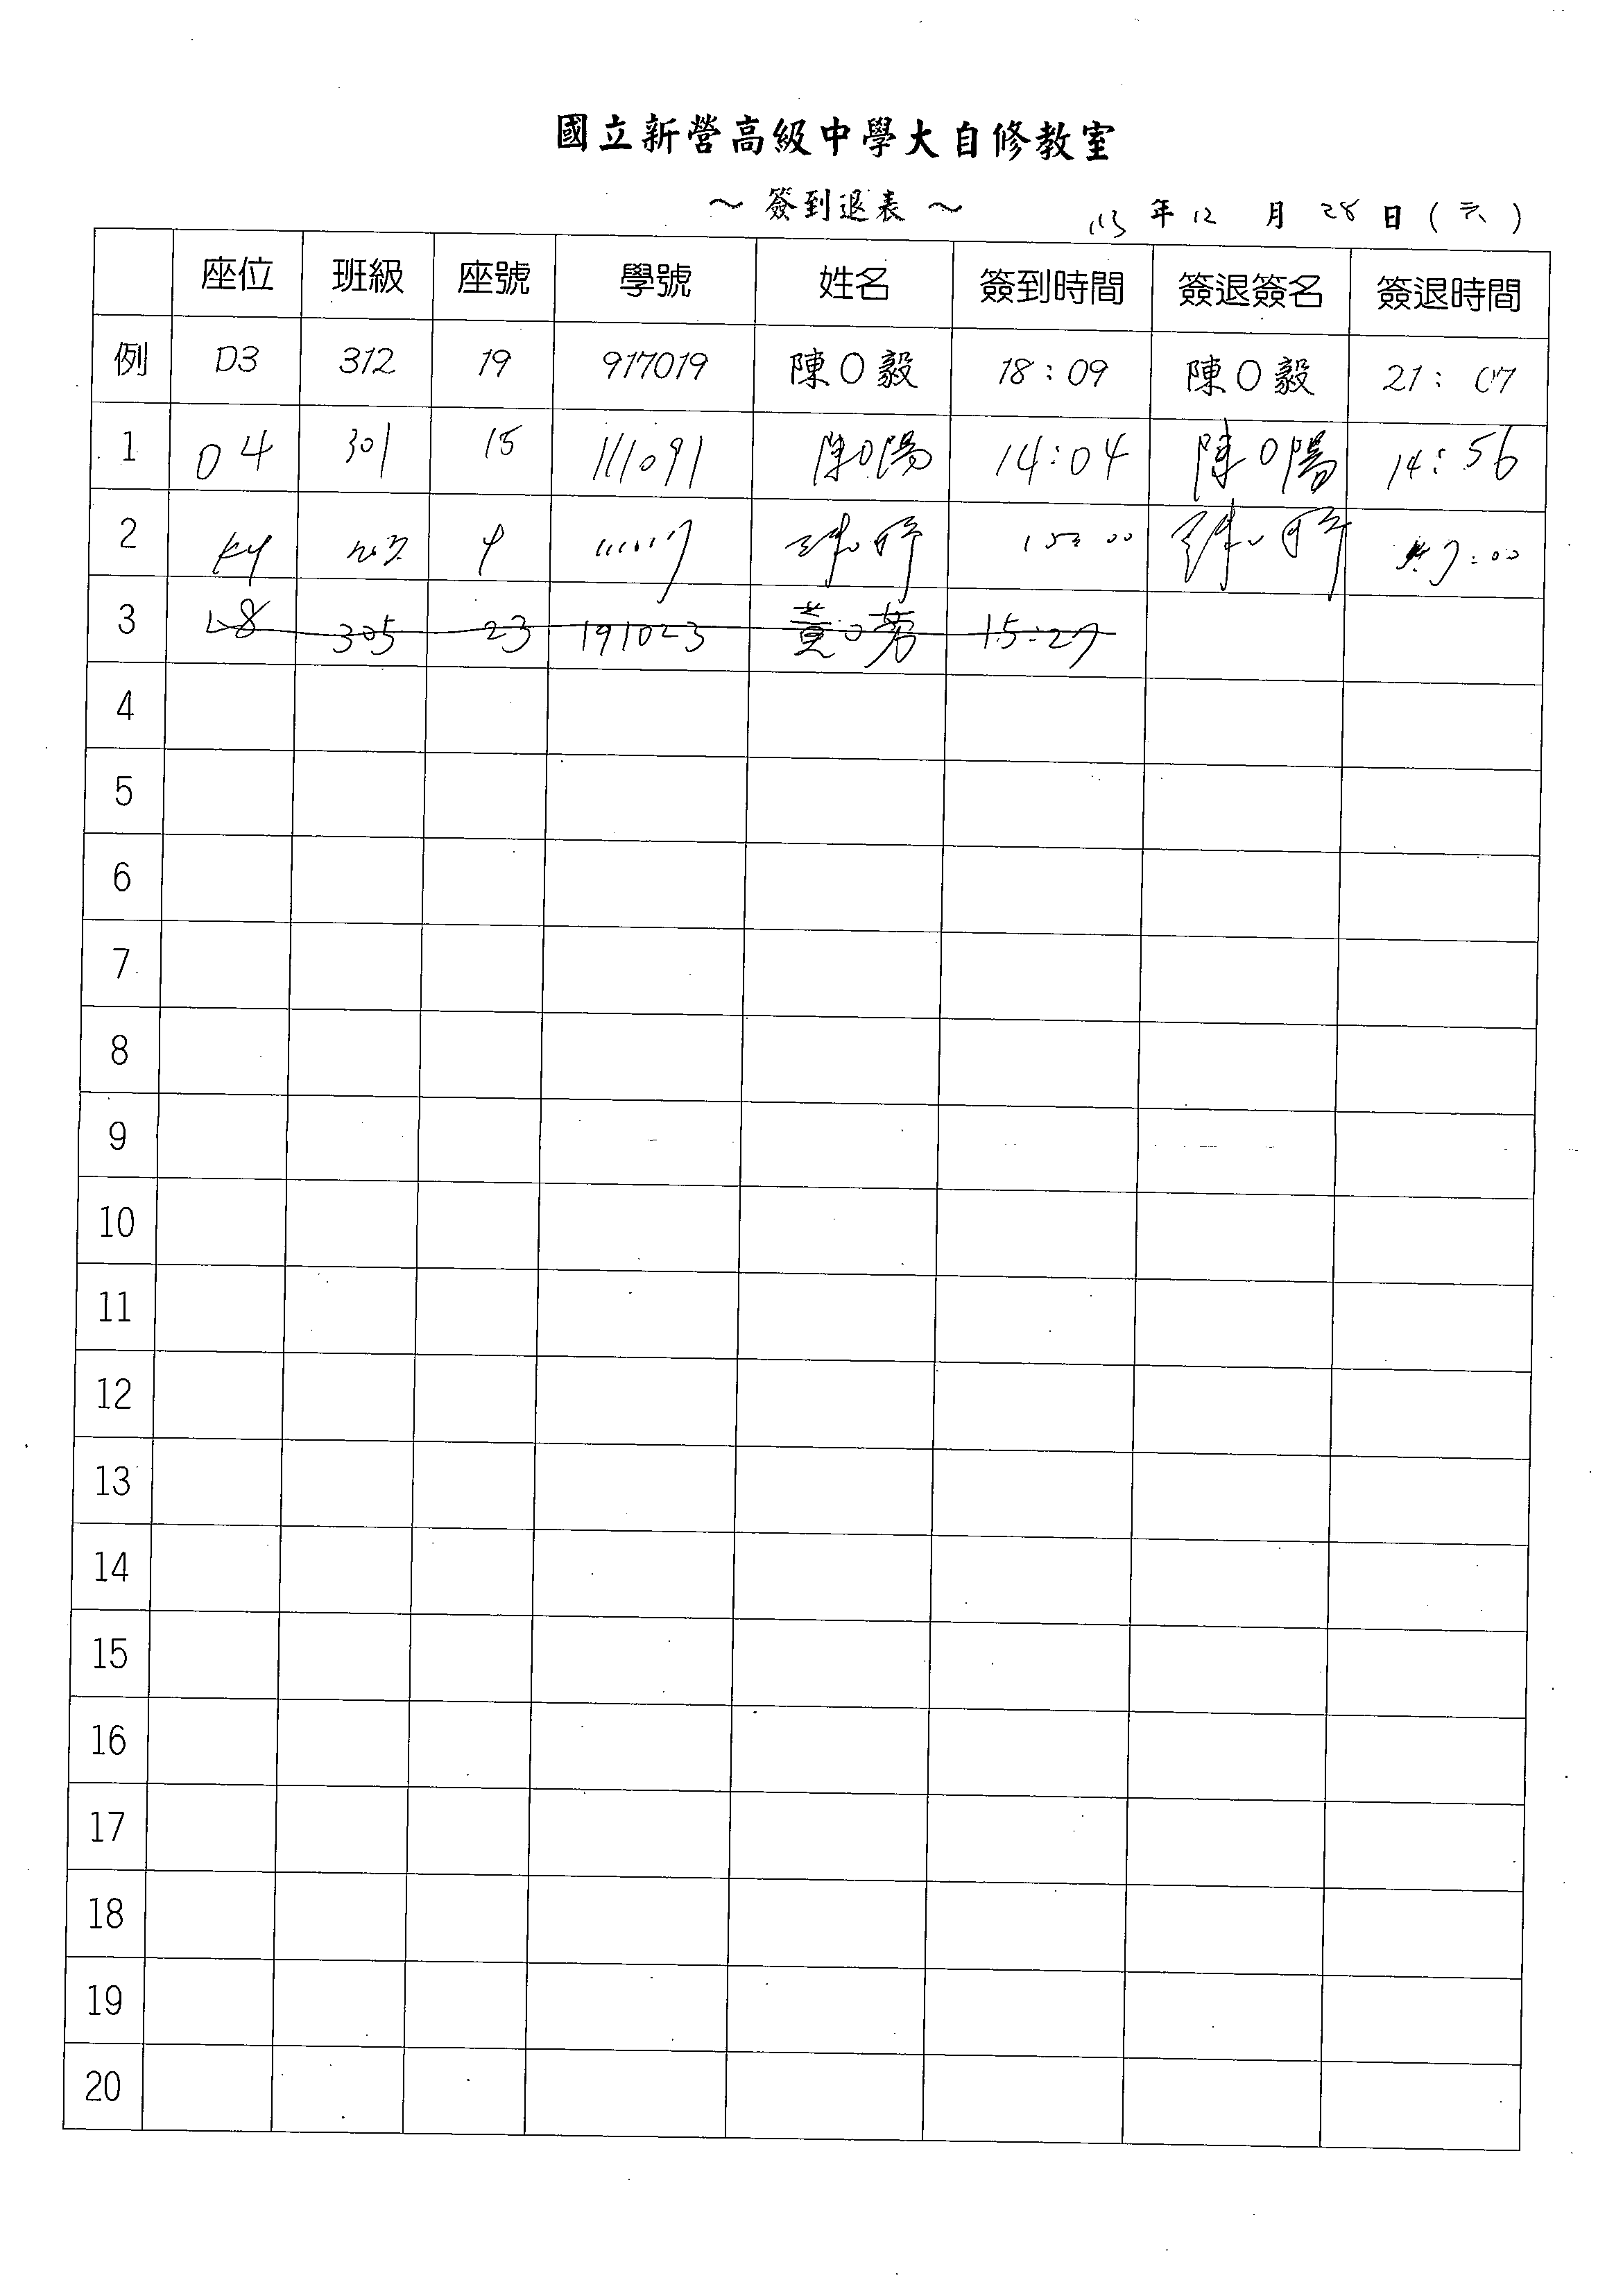 國立新營高級中學大自修教室
～ 簽到退表 ～ 113 年 12 月 28 日 ( 六 )
座位 班級 座號 學號 姓名 簽到時間 簽退簽名 簽退時間
例 D3 312 19 917019 陳O毅 18:09 陳O毅 21:07
1 D4 301 15 111091 陳O陽 14:04 陳O陽 14:56
2 15:00 7:00
3 L8 305 23 191023 黃O芳 15:27
4
5
6
7
8
9
10
11
12
13
14
15
16
17
18
19
20